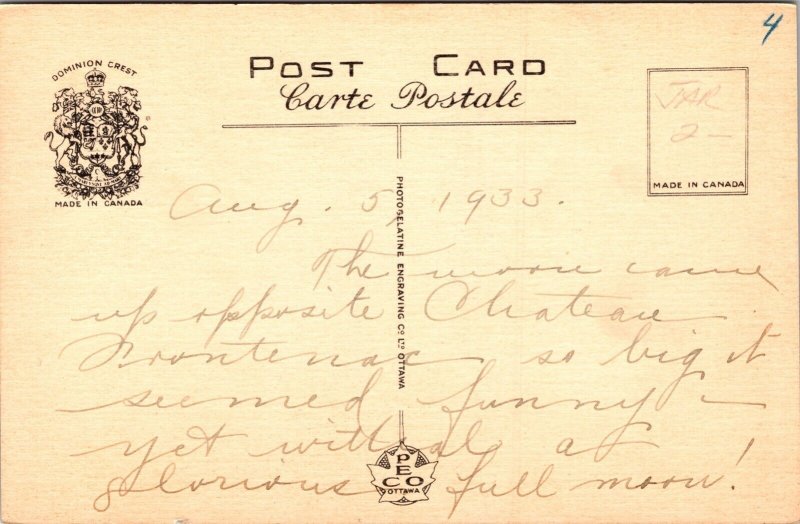 4
DOMINION CREST
MADE IN CANADA
POST CARD
Carte Postale
JAR
2-
MADE IN CANADA
PHOTOGELATINE ENGRAVING CO LTD OTTAWA
Aug. 5, 1933.
The moon came
up opposite Chateau
Frontenac so big it
seemed funny –
yet withal a
glorious full moon!
PECO
OTTAWA